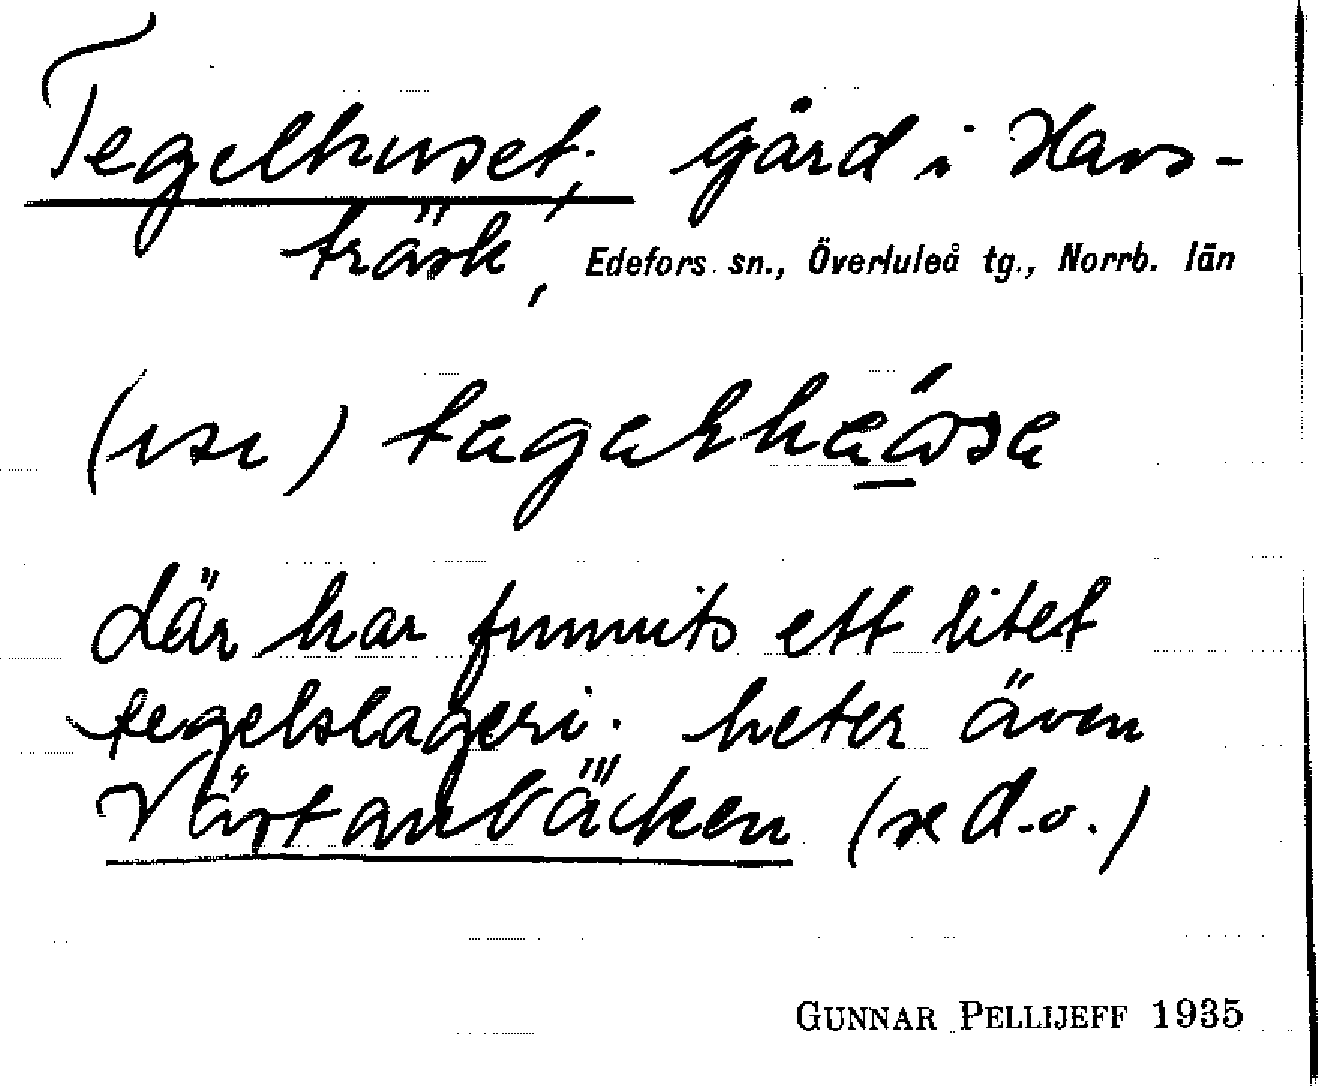 Tegelhuset, gård i Havs-
träsk, Edefors sn., Överluleå tg., Norrb. län
där har funnits ett litet
tegelslageri. heter även
Västanbäcken (se d.o.)
GUNNAR PELLIJEFF 1935